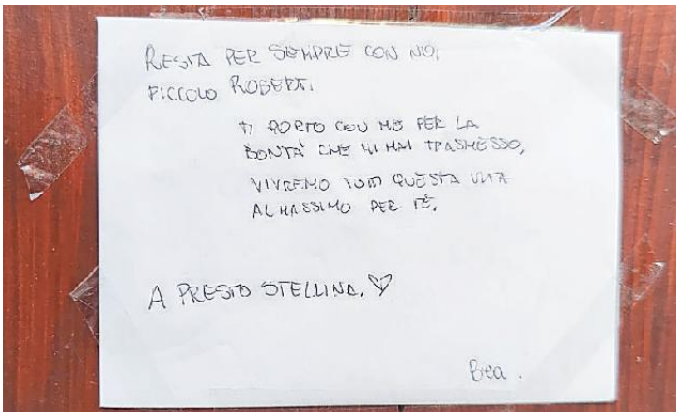 RESTA PER SEMPRE CON NOI,
PICCOLO ROBERTI
TI PORTO CON ME PER LA
BONTA' CHE MI HAI TRASMESSO,
VIVREMO TUTTI QUESTA VITA
AL MASSIMO PER TE.
A PRESTO STELLINA. ♡
Bea.